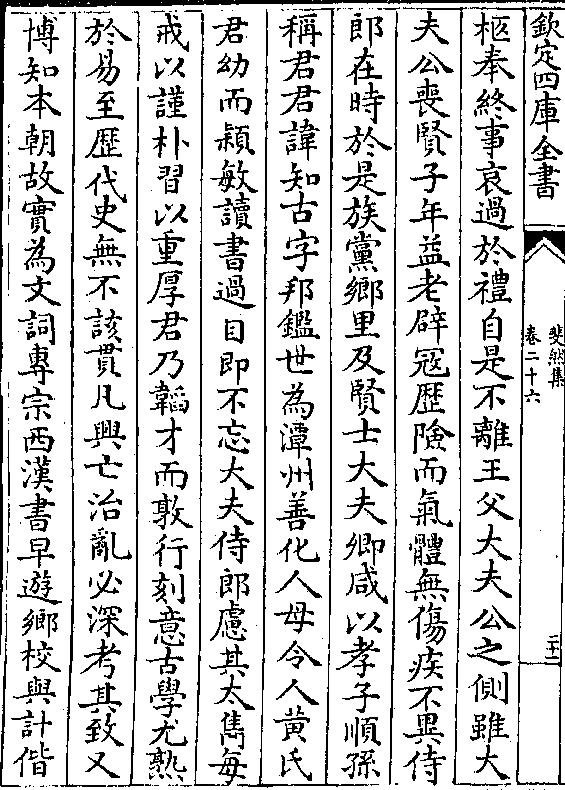 欽定四庫全書
斐然集
卷二十六
二十一
柩奉終事哀過於禮自是不離王父大夫公之側雖大
夫公喪賢子年益老辟冦歴險而氣體無傷疾不異侍
郎在時於是族黨鄉里及賢士大夫卿咸以孝子順孫
稱君君諱知古字邦鑑世為潭州善化人母令人黄氏
君幼而頴敏讀書過目即不忘大夫侍郎慮其太雋每
戒以謹朴習以重厚君乃韜才而敦行刻意古學尤熟
於易至歴代史無不該貫凡興亡治亂必深考其致又
博知本朝故實為文詞專宗西漢書早遊鄉校與計偕